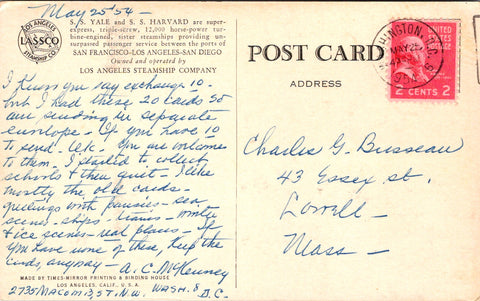 May 25 '54 -
LOS ANGELES
LASSCO
STEAMSHIP CO.
S. S. YALE and S. S. HARVARD are super-
express, triple-screw, 12,000 horse-power tur-
bine-engined, sister steamships providing un-
surpassed passenger service between the ports of
SAN FRANCISCO-LOS ANGELES-SAN DIEGO
Owned and operated by
LOS ANGELES STEAMSHIP COMPANY
I know you say exchange 10 -
but I had these 20 cards so
am sending in separate
envelope - If you have 10
to send - O.K. You are welcome
to them - I started to collect
schools & then quit - I like
mostly the old cards -
greetings with pansies - sea
scenes - ships - trains - winter
& ice scenes - real places - If
you have none of these, keep the
cards, anyway - A. C. McKenney
MADE BY TIMES-MIRROR PRINTING & BINDING HOUSE
LOS ANGELES, CALIF., U. S. A.
2735 Macomb St. N.W. Wash. 8 D.C.
POST CARD
ADDRESS
WASHINGTON
MAY 25
1954
D.C.
UNITED STATES POSTAGE
2 CENTS 2
Charles G. Busseau
43 Essex St.
Lowell -
Mass -